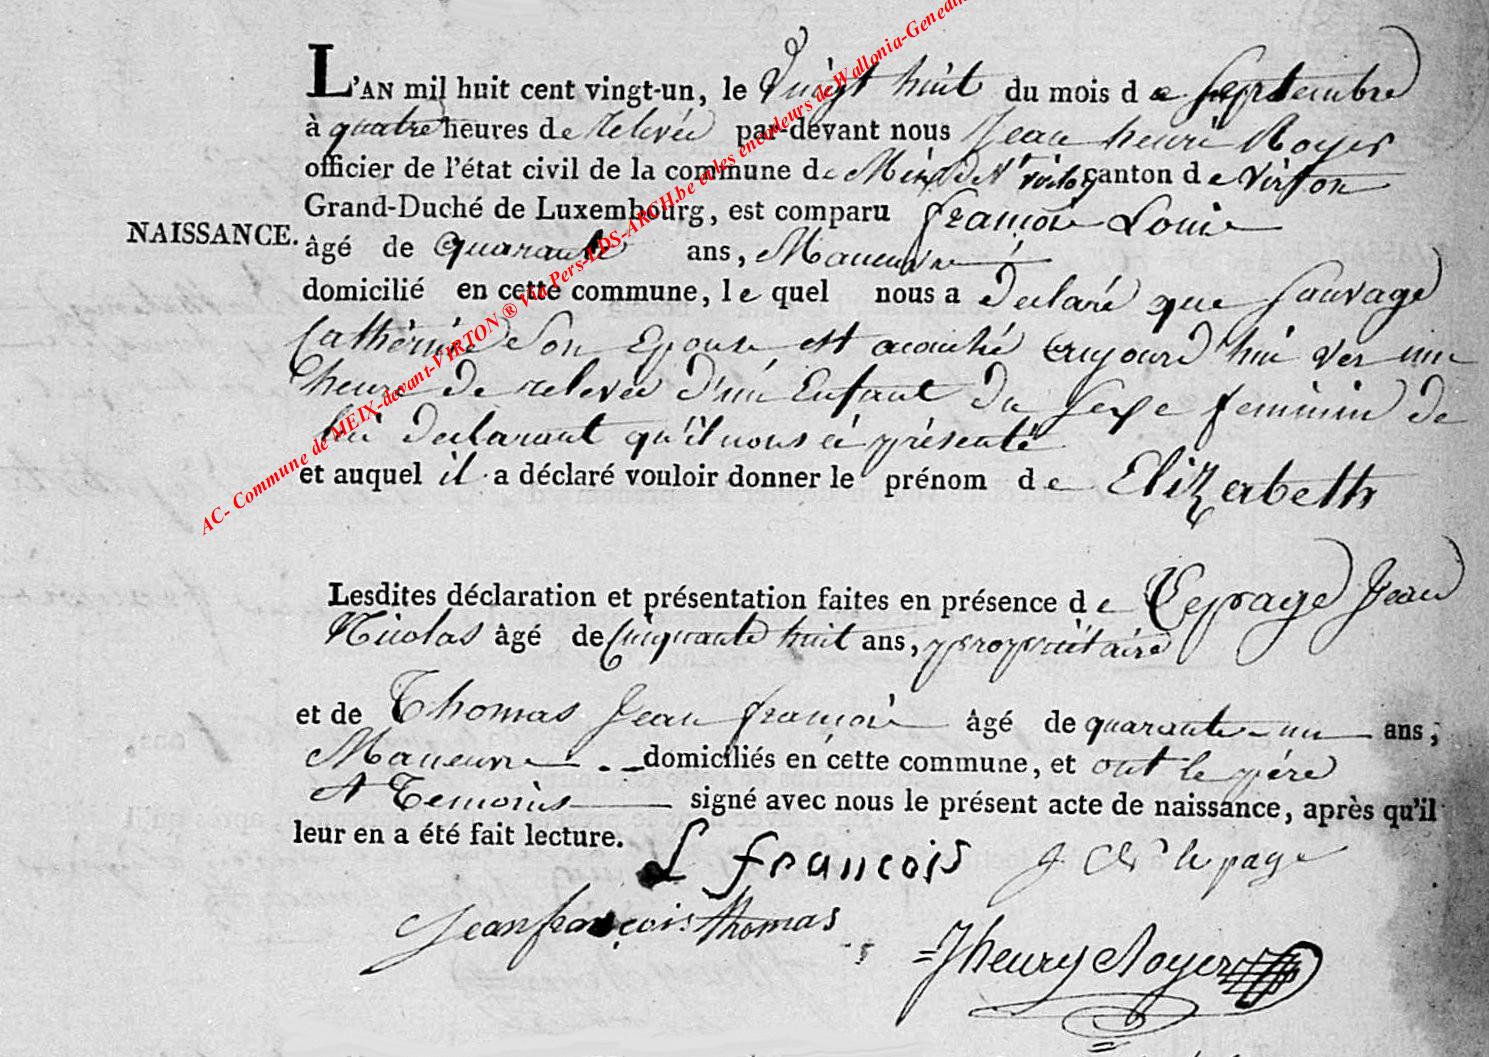 L'AN mil huit cent vingt-un, le Vingt huit du mois de septembre
à quatre heures de relevée par-devant nous Jean henri Royer
officier de l'état civil de la commune de Meix dvt virton canton de virton
Grand-Duché de Luxembourg, est comparu françois Louis
NAISSANCE. âgé de quarante ans, Maneuvre
domicilié en cette commune, le quel nous a declaré que Sauvage
Cathérine Son Epouse est acouché aujourd'hui ver une
heure de relevée d'un Enfant du sexe feminin de
lui declarant qu'il nous à présenté
et auquel il a déclaré vouloir donner le prénom de Elizabeth
Lesdites déclaration et présentation faites en présence de Lepage Jean
Nicolas âgé de Cinquante huit ans, propriétaire
et de Thomas Jean françois âgé de quarante un ans,
Maneuvre domiciliés en cette commune, et ont le père
et Temoins signé avec nous le présent acte de naissance, après qu'il
leur en a été fait lecture.
L francois J lepage
Jean françois thomas
Jhenry Royer
AC- Commune de MEIX-devant-VIRTON ® via Pers-LDS-ARCH.be et les encodeurs de Wallonia-Genealo